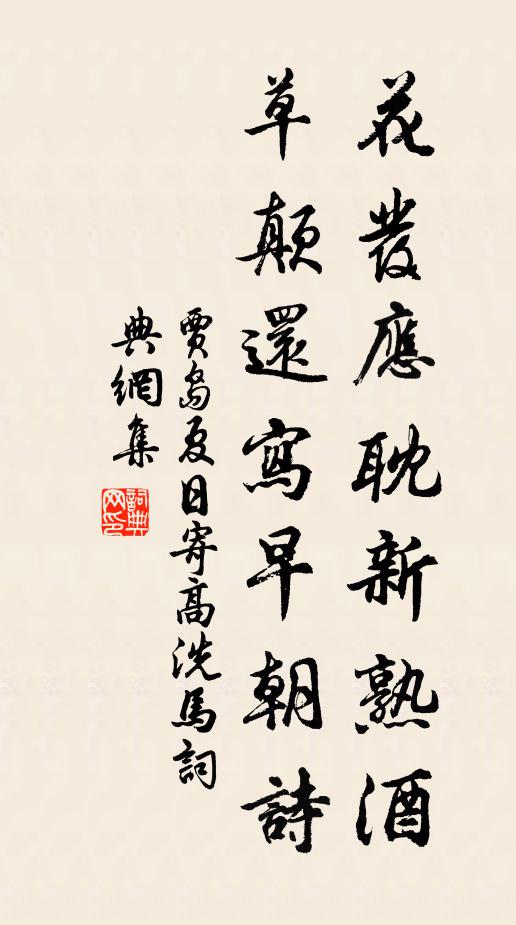 花發應耽新熟酒
草顛還寫早朝詩
賈島夏日寄高洗馬詞
典網集
詞典网印